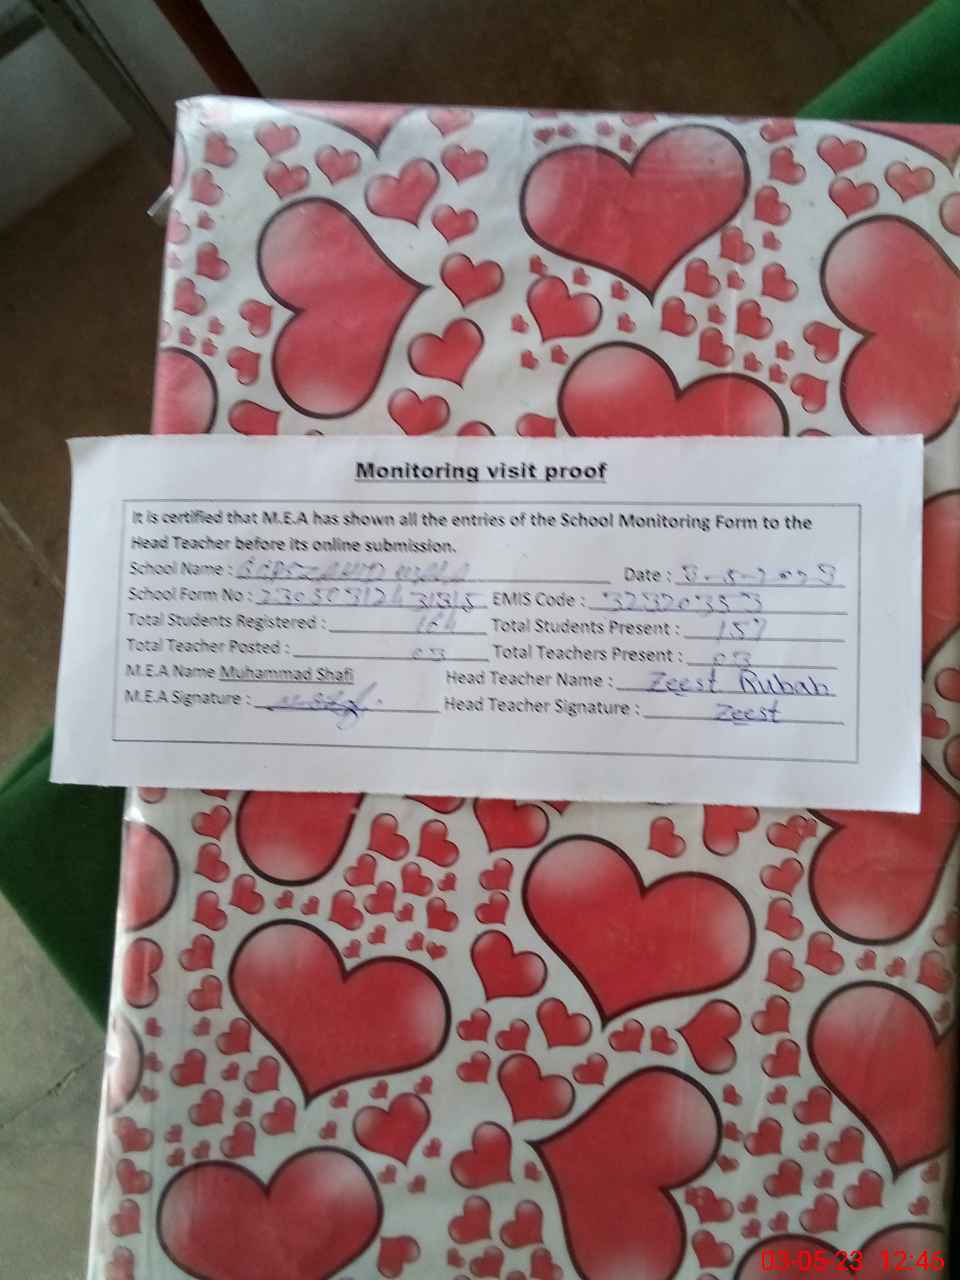 Monitoring visit proof
It is certified that M.E.A has shown all the entries of the School Monitoring Form to the
Head Teacher before its online submission.
School Name : Date :
School Form No : EMIS Code :
Total Students Registered : 164 Total Students Present : 157
Total Teacher Posted : 03 Total Teachers Present : 03
M.E.A Name Muhammad Shafi Head Teacher Name : Zeest Rubab
M.E.A Signature : Head Teacher Signature : Zeest
03-05-23 12:46